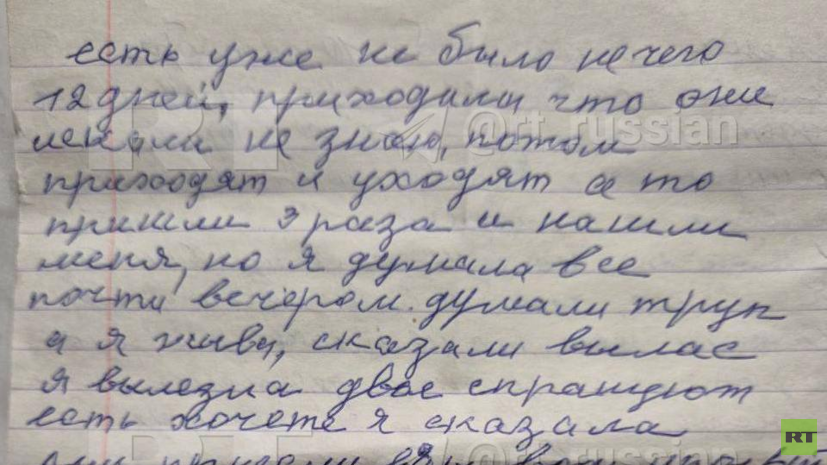 есть уже не было нечего
12 дней, приходили что они
искали не знаю, потом
приходят и уходят а то
пришли 3 раза и нашли
меня, но я думала все
почти вечером. думали труп
а я жива, сказали вылас
я вылезла двое спрашуют
есть хочете я сказала
они
RT
@rt_russian
RT